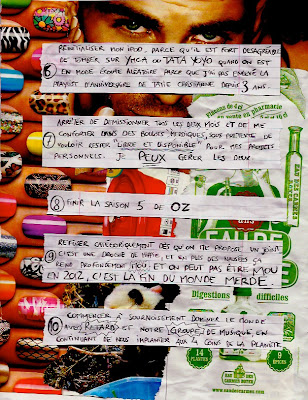 RÉINITIALISER MON IPOD, PARCE QU'IL EST FORT DÉSAGRÉABLE
DE TOMBER SUR YMCA OU TATA YOYO QUAND ON EST
6 EN MODE ÉCOUTE ALÉATOIRE PARCE QUE J'AI PAS ENLEVÉ LA
PLAYLIST D'ANNIVERSAIRE DE TATIE CHRISTIANNE DEPUIS 3 ANS.
en pharmacie
ARRÊTER DE DÉMISSIONNER TOUS LES DEUX MOIS ET DE ME
CONFORTER DANS DES BOULOTS MERDIQUES, SOUS PRÉTEXTE DE
7 VOULOIR RESTER "LIBRE ET DISPONIBLE" POUR MES PROJETS
PERSONNELS. JE PEUX GÉRER LES DEUX.
8 FINIR LA SAISON 5 DE OZ
REFUSER CATÉGORIQUEMENT DÈS QU'ON ME PROPOSE UN JOINT.
9 C'EST UNE DROGUE DE HIPPIE, ET EN PLUS DES NAUSÉES ÇA
REND PROFONDÉMENT MOU, ET ON PEUT PAS ÊTRE MOU
EN 2012, C'EST LA FIN DU MONDE MERDE.
Digestions difficiles
COMMENCER À SOURNOISEMENT DOMINER LE MONDE
10 AVEC RETARD ET NOTRE GROUPE DE MUSIQUE, EN
CONTINUANT DE NOUS IMPLANTER AUX 4 COINS DE LA PLANÈTE
14 PLANTES
9 ÉPICES